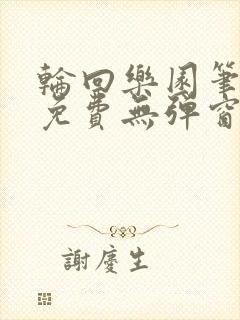 輪回樂園筆
免費無彈窗
謝慶生